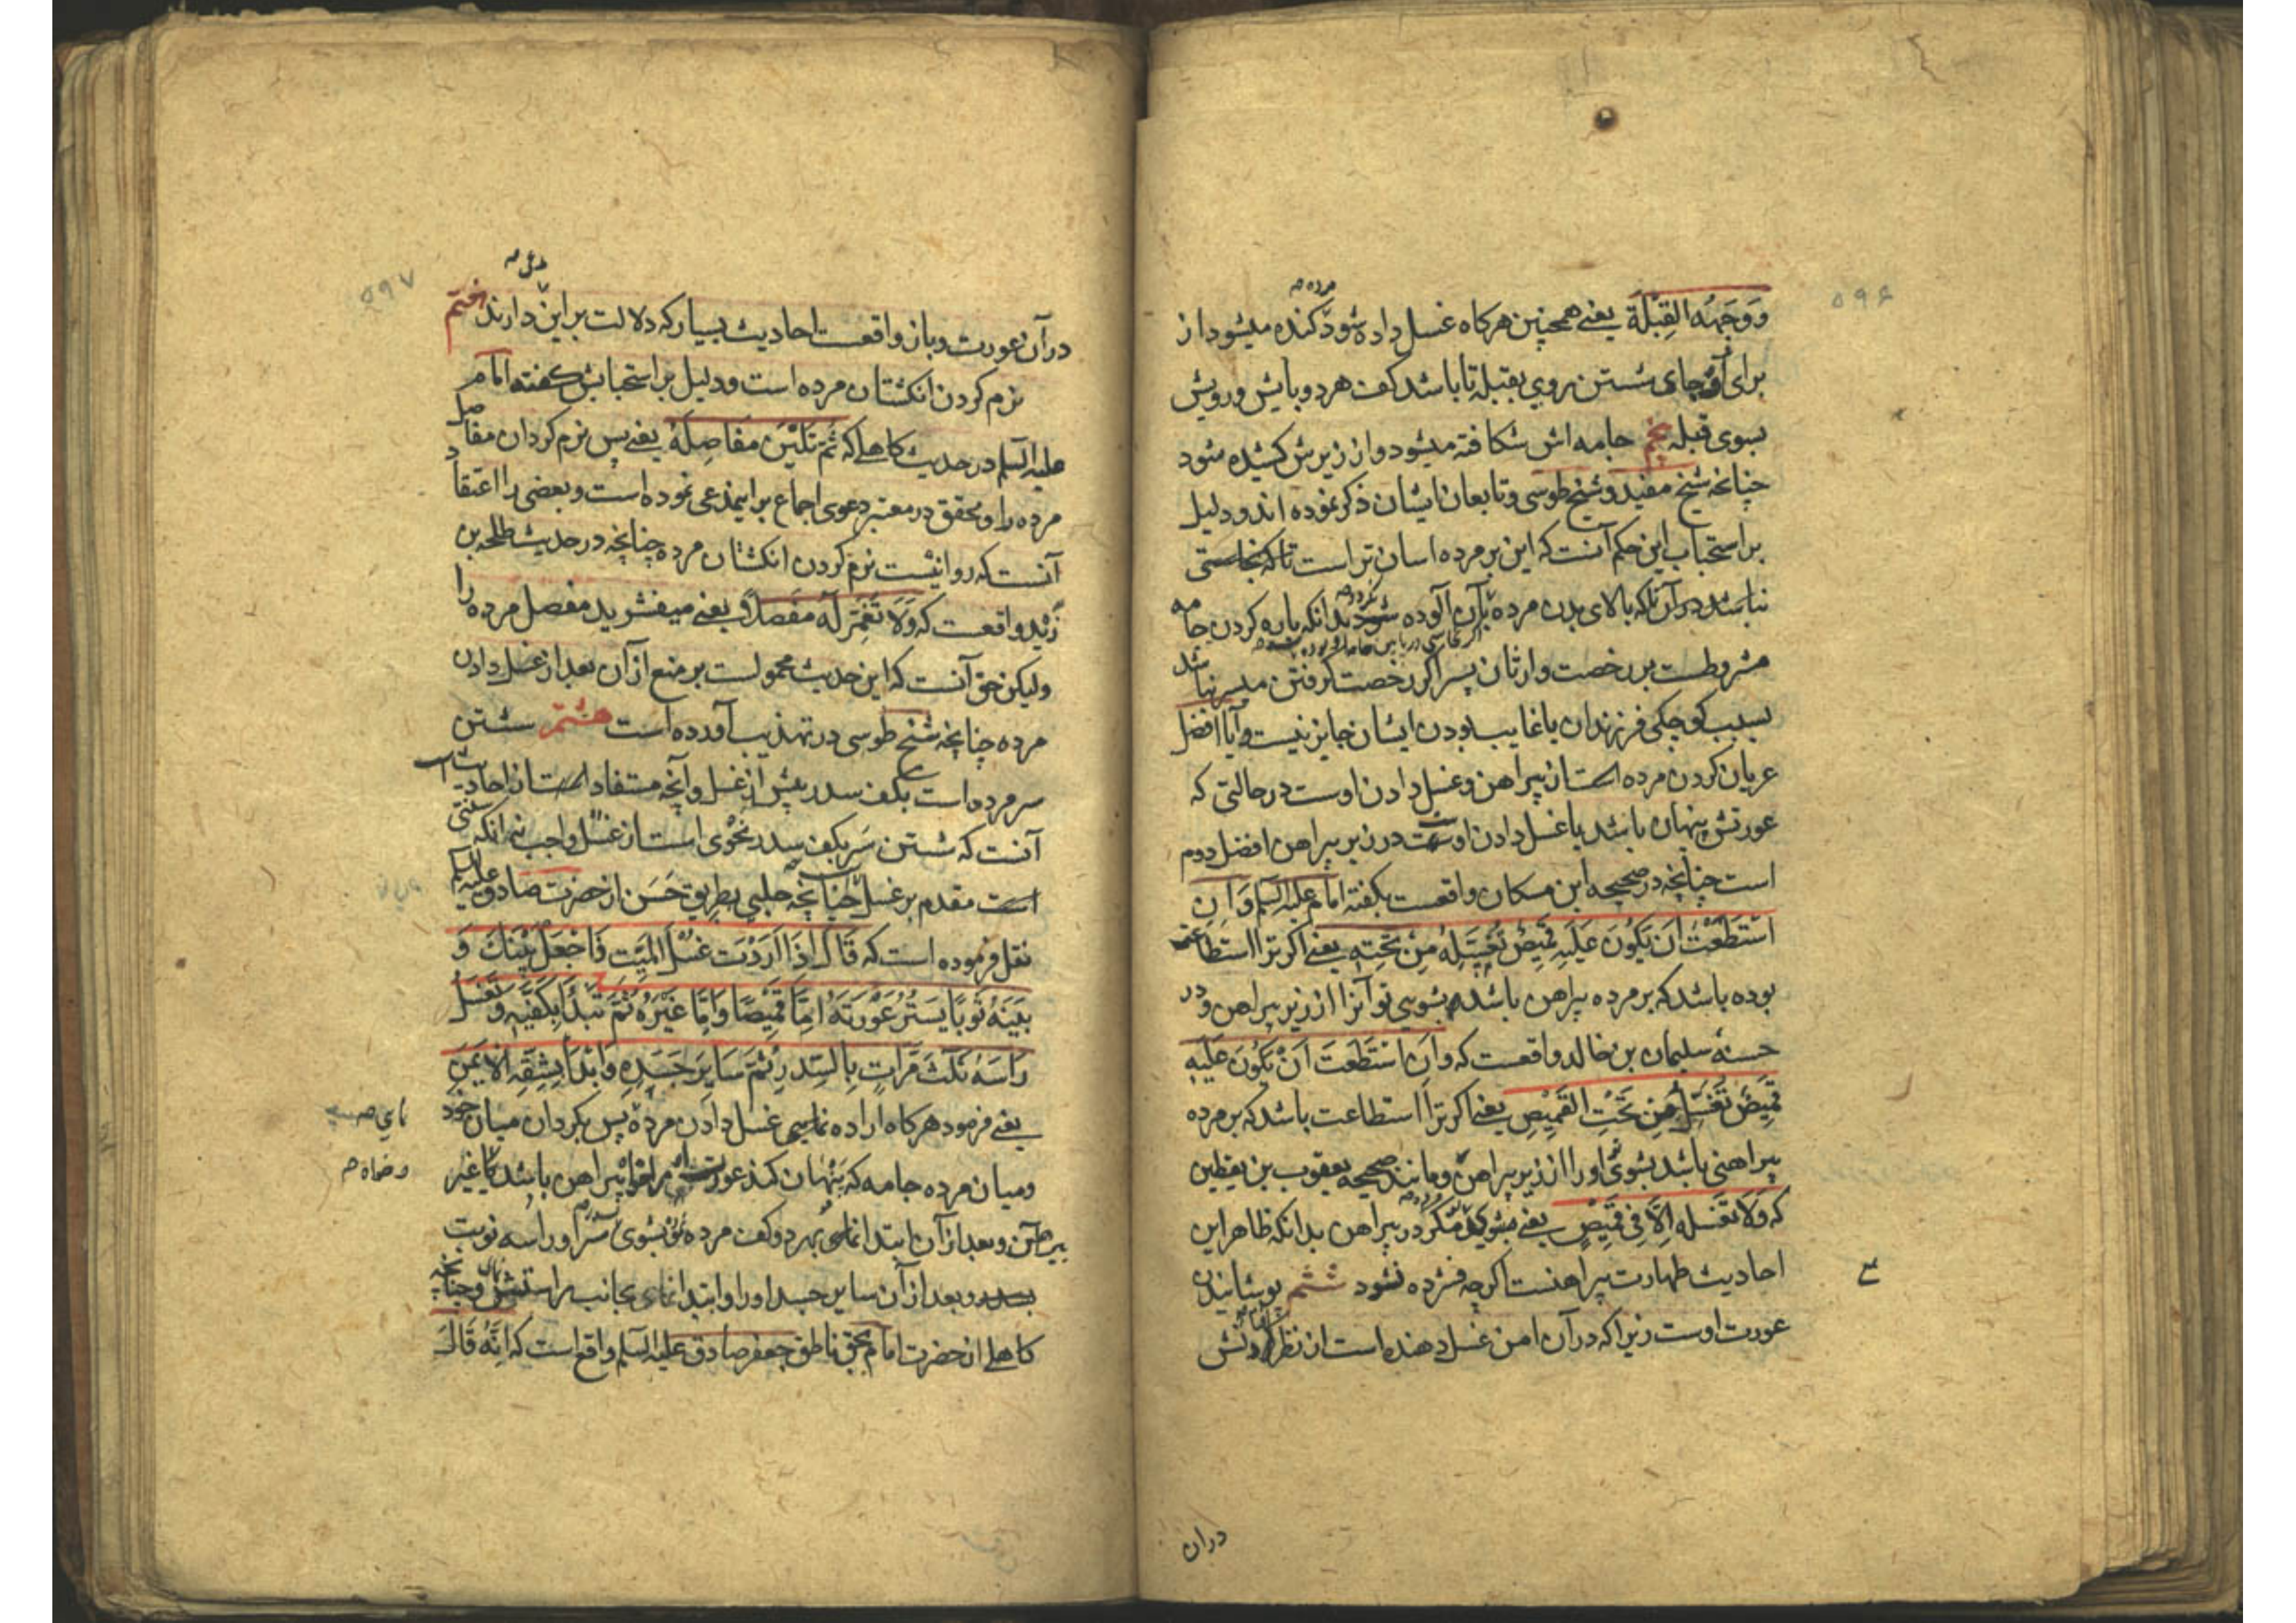 ۵۹۶
مرده ص
وَوَجْهُه القِبْلَة یعنے همچنین هرکاه غسل داده شود کنده میشود از
برای او جای شستن روی بقبله تا باشد کف هر دو پایش و رویش
بسوی قبله پنجم جامه اش شکافته میشود و از زیرش کشیده شود
چنانچه شیخ مفید و شیخ طوسی و تابعان ایشان ذکر نموده اند و دلیل
بر استحباب این حکم آنست که این بر مرده اسان تر است تا که نجاستی
نباشد در آن تا که بالای بدن مرده بآن آلوده بدانکه پاره کردن جامه
مشروطست بر رخصت وارثان پس اگر رخصت گرفتن میسر نباشد
بسبب کوچکی فرزندان یا غایب بودن ایشان جایز نیست و آیا افضل
عریان کردن مرده است از پیراهن و غسل دادن اوست در حالتی که
عورتش پنهان باشد یا غسل دادن اوست در زیر پیراهن افضل دوم
است چنانچه در صحیحه ابن مسکان واقعست بکفته امام علیه السلم وَاِنِ
اسْتَطَعْتَ اَن یَکُونَ عَلَیهِ قَمِیصٌ تُغَسِّلهُ مِنْ تَحْتِهِ یعنے اکر ترا استطاعت
بوده باشد که بر مرده پیراهن باشد بشوی تو آنرا از زیر پیراهن و در
حسنه سلیمان بن خالد واقعست که وَاِنِ اسْتَطَعْتَ اَنْ یَکُونَ عَلَیْهِ
قَمِیصٌ تُغَسِّلُ مِن تَحْتِ القَمِیْصِ یعنے اکر ترا استطاعت باشد که بر مرده
پیراهنی باشد بشوی او را از زیر پیراهن و مانند صحیحه یعقوب بن یقطین
که وَلَا تغسله اِلَّا فِی قَمِیْصٍ یعنے مشوی مکر در پیراهن بدانکه ظاهر این
احادیث طهارت پیراهنست اکرچه فشرده نشود ششم پوشانیدن
عورت اوست زیرا که در آن امن غسل دهنده است از نظر
دران
۵۹۷
در آن بعورت و بان واقعست احادیث بسیار که دلالت بر این دارند هفتم
نرم کردن انکشتان مرده است و دلیل بر استحبابش کفته امام
علیه السلم در حدیث کاهلے که ثُمَّ تَلَیّنْ مفَاصِلَهُ یعنے پس نرم کردان مفاصل
مرده را و محقق در معتبر دعوی اجماع بر اینمدعی نموده است و بعضی را اعتقاد
آنست که روا نیست نرم کردن انکشتان مرده چنانچه در حدیث طلحه بن
زید واقعست که وَلَا تَغْمِزْ لَهُ مفصلًا یعنے میفشرید مفصل مرده را
ولیکن حق آنست که این حدیث محمولست بر منع از آن بعد از غسل دادن
مرده چنانچه شیخ طوسی در تهذیب آورده است هشتم شستن
سر مرده است بکف سدر پیش از غسل و آنچه مستفاد است از احادیث
آنست که شستن سَر بکف سدر نحوی است از غسل واجب نه انکه سنتی
است مقدم بر غسل چنانچه حلبی بطریق حَسَن از حضرت صادق علیه السلم
نقل فرموده است که قَالَ اِذَا اَرَدْتَ غسْلَ المَیّتِ فَاجْعَلْ بَیْنَکَ وَ
بَیْنَهُ ثَوْبًا یَسْتُرُ عَوْرَتَهُ اِمَّا قَمِیْصًا وَاِمَّا غَیْرَهُ ثُمَّ تَبْدَأُ بِکَفَّیْهِ وَتَغْسِلُ
رَأسَهُ ثَلٰثَ مَرَّاتٍ بِالسِّدْرِ ثُمَّ سَایِرَ جَسَدِهِ وَابْدَأ بِشِقِّهِ الْاَیمَنِ
یعنے فرمود هرکاه اراده نمایی غسل دادن مرده پس بکردان میان خود
و میان مرده جامه که پنهان کند عورت پیراهن باشد یا غیر
پیراهن و بعد از آن ابتدا نمای بهر دو کف مرده و بشوی سر او را سه نوبت
بسدر و بعد از آن سایر جسد او را و ابتدا نمای بجانب راستش و چنانچه
کاهلے از حضرت امام بحق ناطق جعفر صادق علیه السلم واقع است که اِنَّهُ قَالَ
نمای ص
و خواه ص